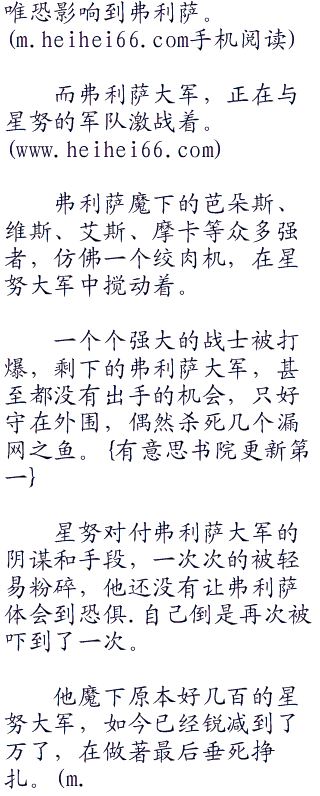 唯恐影响到弗利萨。
(m.heihei66.com手机阅读)
而弗利萨大军，正在与
星努的军队激战着。
(www.heihei66.com)
弗利萨魔下的芭朵斯、
维斯、艾斯、摩卡等众多强
者，仿佛一个绞肉机，在星
努大军中搅动着。
一个个强大的战士被打
爆，剩下的弗利萨大军，甚
至都没有出手的机会，只好
守在外围，偶然杀死几个漏
网之鱼。{有意思书院更新第
一}
星努对付弗利萨大军的
阴谋和手段，一次次的被轻
易粉碎，他还没有让弗利萨
体会到恐俱.自己倒是再次被
吓到了一次。
他魔下原本好几百的星
努大军，如今已经锐减到了
万了，在做著最后垂死挣
扎。(m.